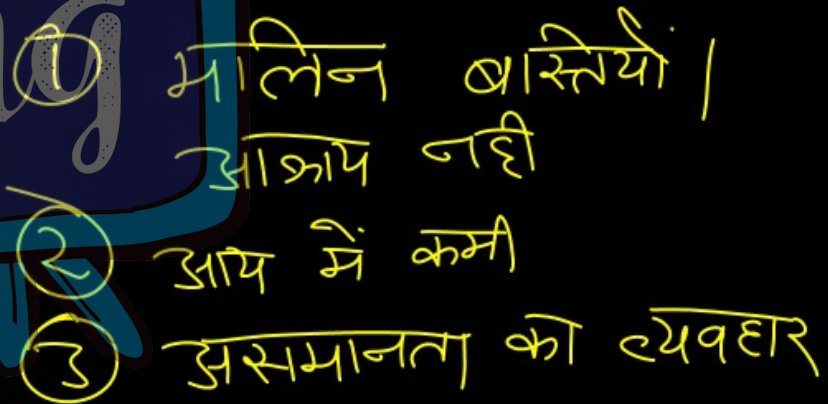 ① मलिन बस्तियों |
आश्रय नही
② आय में कमी
③ असमानता का व्यवहार